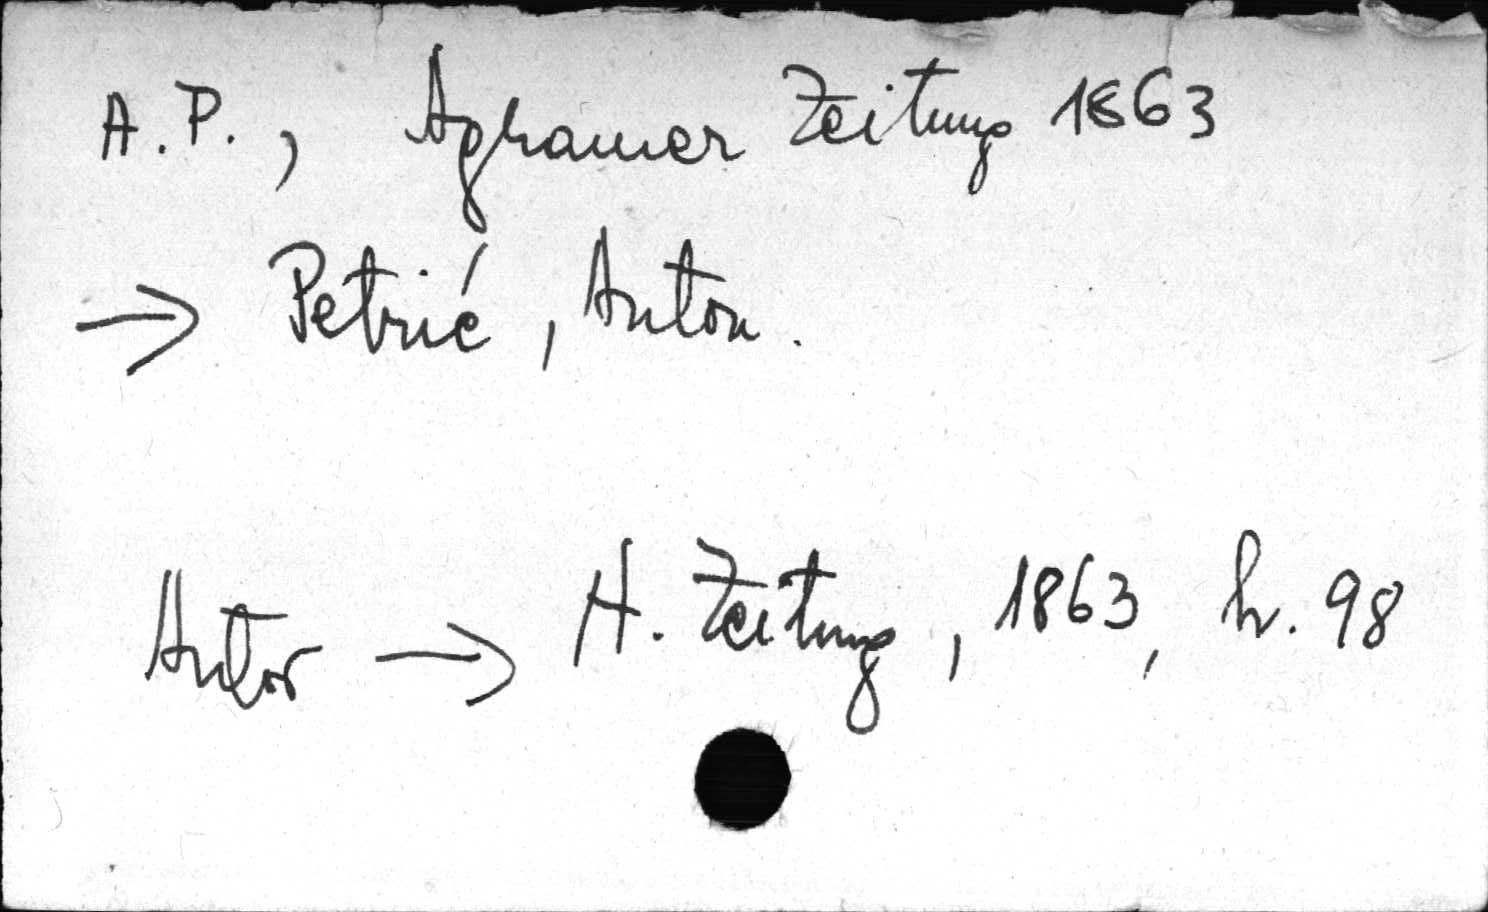 A. P., Agramer Zeitung 1863
→ Petrić, Anton.
Autor → A. Zeitung, 1863, br. 98